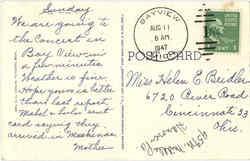 Sunday
We are going to
the Concert in
Bay View in
a few minutes
Weather is fine.
Hope yours is better
than last report.
Mabel & John sent
card saying they
arrived in Mackinac
Mother
BAYVIEW
AUG 11
8 AM
1947
MICH.
POST CARD
Miss Helen E. Beedle
6720 Road
Cincinnati 33
Ohio.